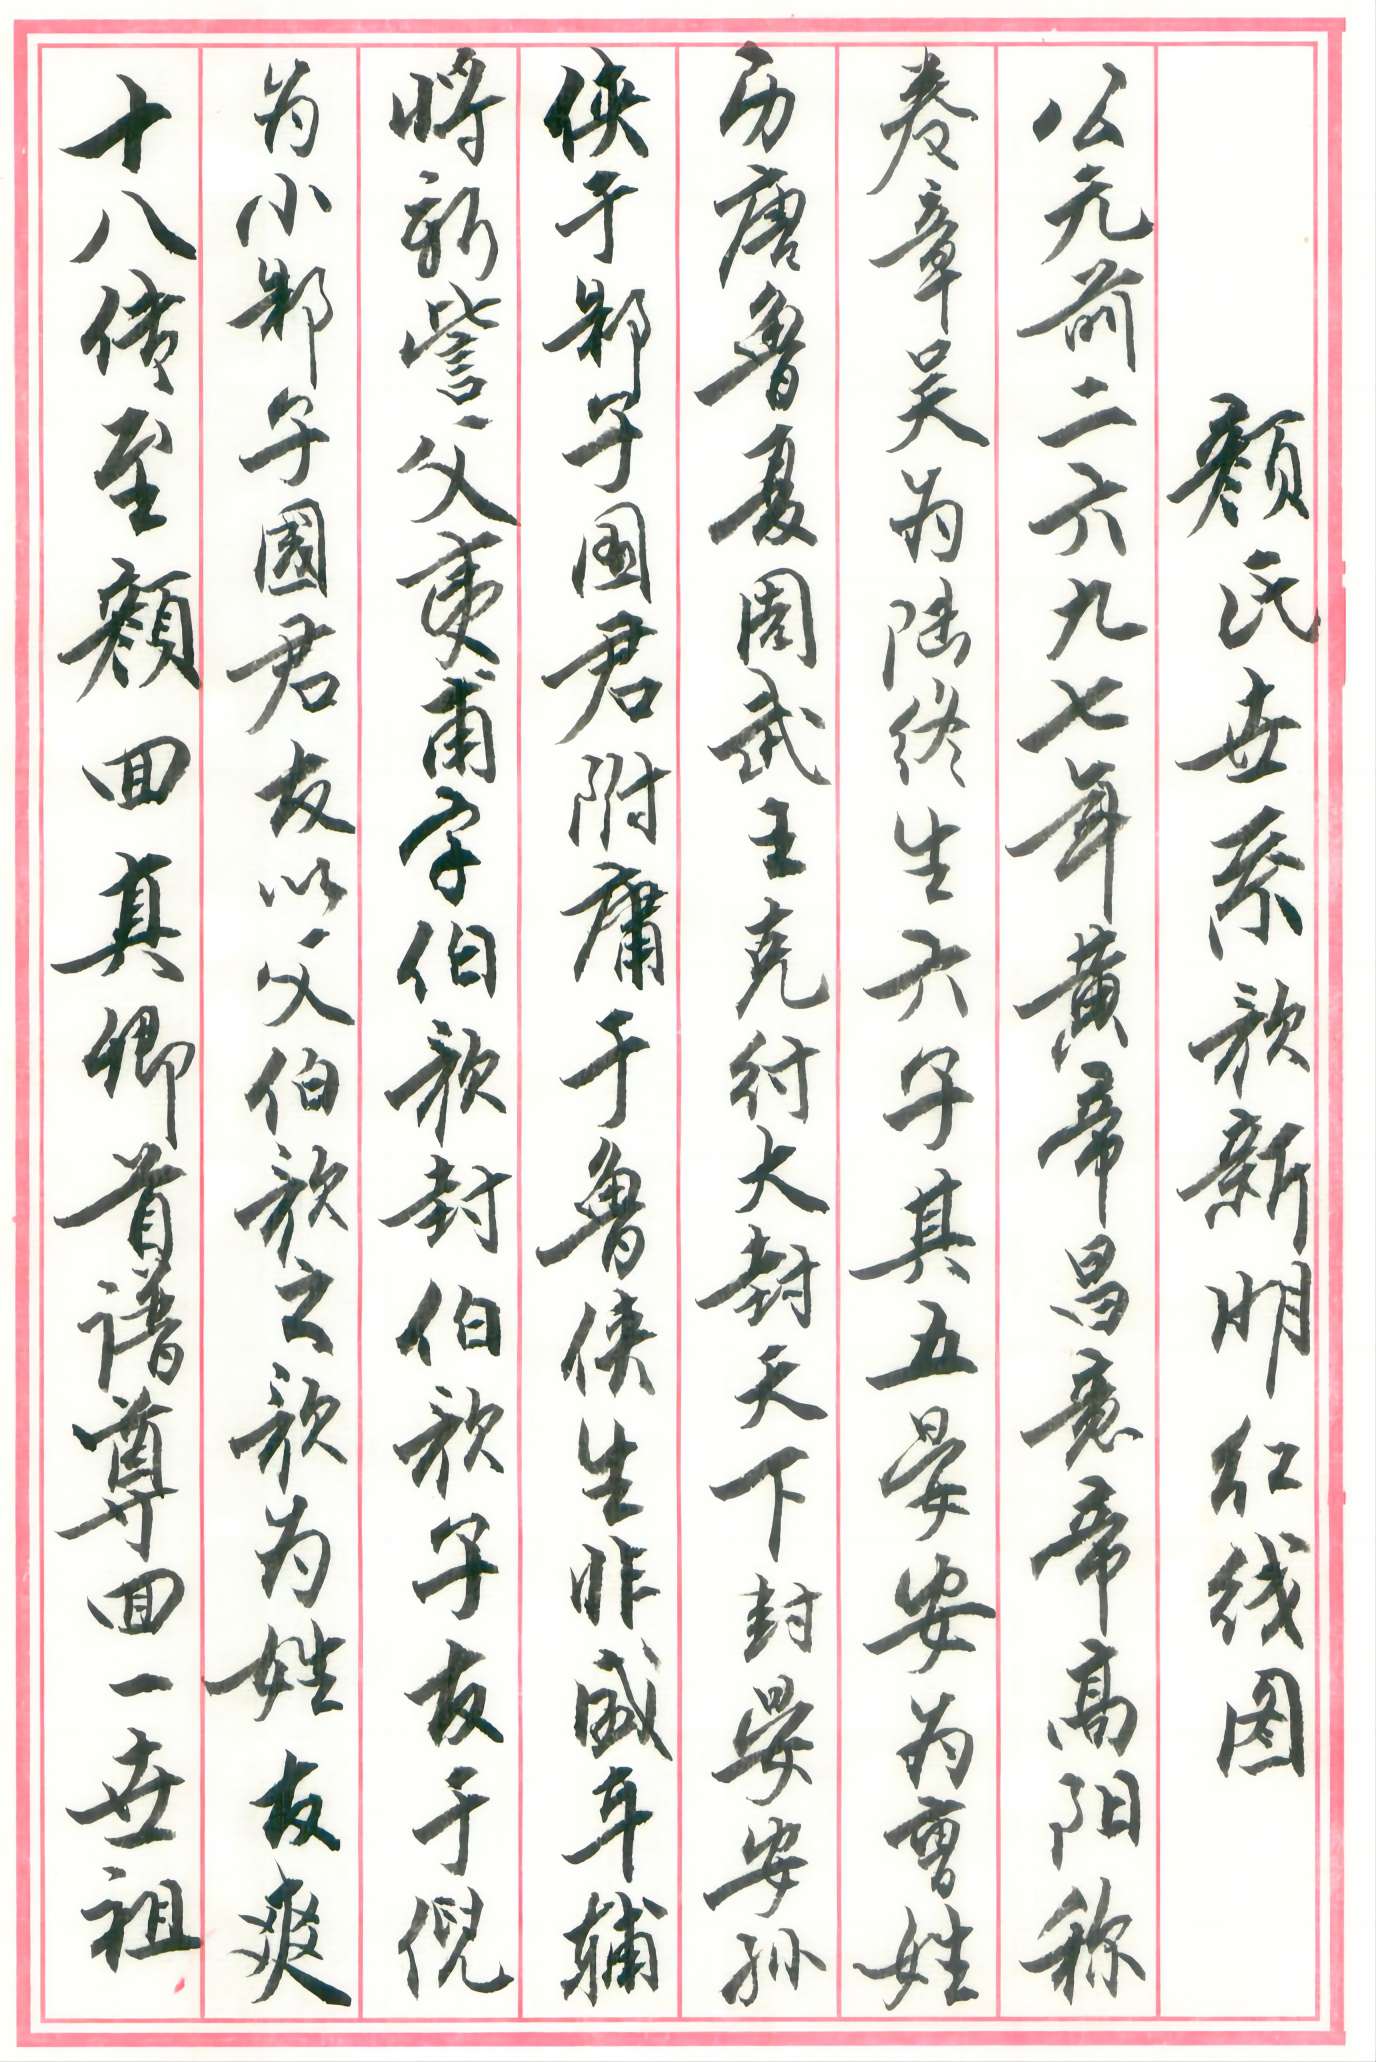 颜氏世系歌新明红线图
公元前二六九七年黄帝昌意帝高阳称
卷章吴为陆终生六子其五晏安为曹姓
历唐鲁夏周武王克纣大封天下封晏安孙
侠于邾子国君附庸于鲁侠生非成车辅
将新訾父夷甫字伯歌封伯歌子友于倪
为小邾子國君友以父伯歌之歌为姓友爽
十八传至颜回真卿首谱尊回一世祖